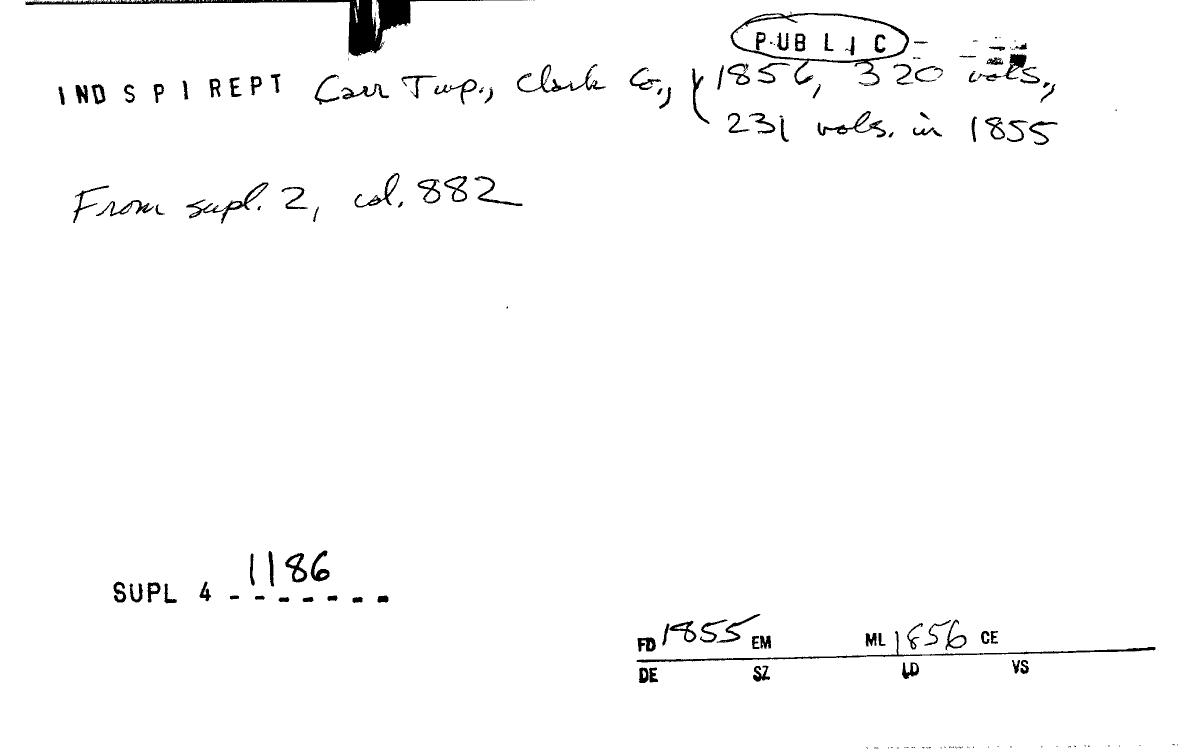 PUBLIC
INDSPIREPT Carr Twp., Clark Co., 1856, 320 vols.,
231 vols. in 1855
From supl. 2, col. 882
SUPL 4 1186
FD 1855 EM ML 1856 CE
DE SZ LD VS